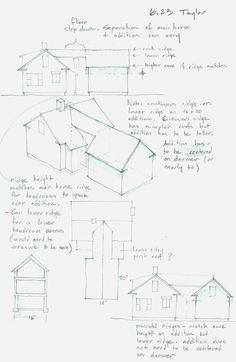 6.23 Taylor
floor
step down. Separation of main house
+ addition can vary
ridge
lower ridge
higher eave if ridge matches
Note: continuous ridge on
lower ridge on 16x20
addition. Continuous ridge
has simpler roofs but
addition has to be taller.
Addition has
to be centered
on dormer (or
nearly so)
Ridge height
matches main house ridge
for headroom to space
over addition.
Can lower ridge
for a lower
headroom access
(would need to
measure to be sure)
lower entry
porch roof?
20'
16'
16'
parallel ridges - match eave
height on addition but
lower ridge. addition does
not need to be centered
on dormer